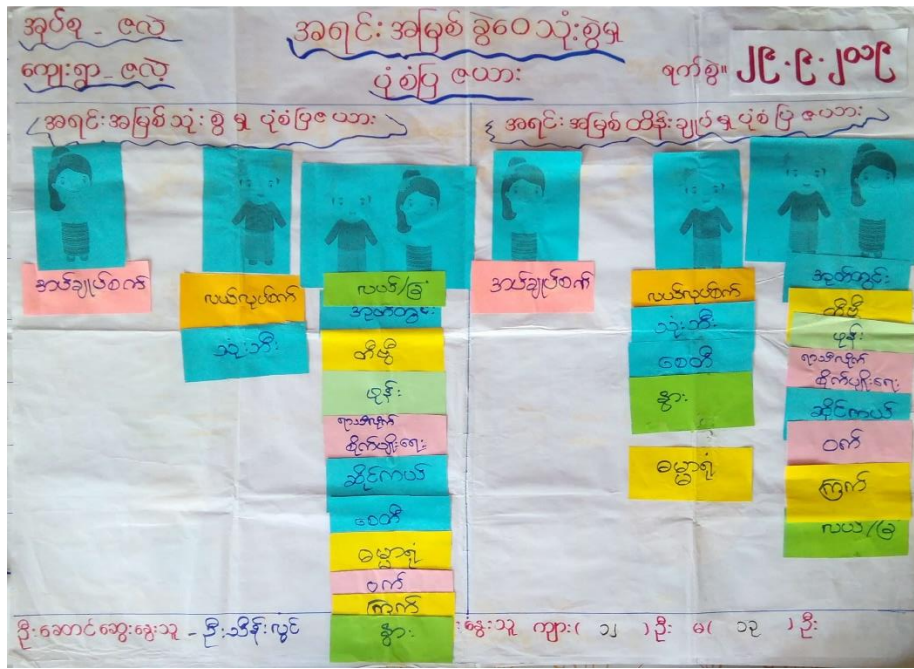 အုပ်စု - ဇလဲ့
ကျေးရွာ - ဇလဲ့
အရင်းအမြစ် ခွဲဝေသုံးစွဲမှု
ပုံစံပြ ဇယား
ရက်စွဲ။ ၂၉.၉.၂၀၁၉
အရင်းအမြစ်သုံးစွဲမှု ပုံစံပြဇယား
အရင်းအမြစ်ထိန်းချုပ်မှု ပုံစံပြဇယား
အပ်ချုပ်စက်
လယ်လုပ်စက်
သုံးဘီး
လယ်/ခြံ
အုတ်တွင်း
တီဗွီ
ဖုန်း
ရာသီလိုက်
စိုက်ပျိုးရေး
ဆိုင်ကယ်
စေတီ
ဓမ္မာရုံ
ဝက်
ကြက်
နွား
အပ်ချုပ်စက်
လယ်လုပ်စက်
သုံးဘီး
စေတီ
နွား
ဓမ္မာရုံ
အုတ်တွင်း
တီဗွီ
ဖုန်း
ရာသီလိုက်
စိုက်ပျိုးရေး
ဆိုင်ကယ်
ဝက်
ကြက်
လယ်/ခြံ
ဦးဆောင်ဆွေးနွေးသူ - ဦးသိန်းလွင် နွေးသူ ကျား( ၁၂ )ဦး မ( ၁၃ )ဦး